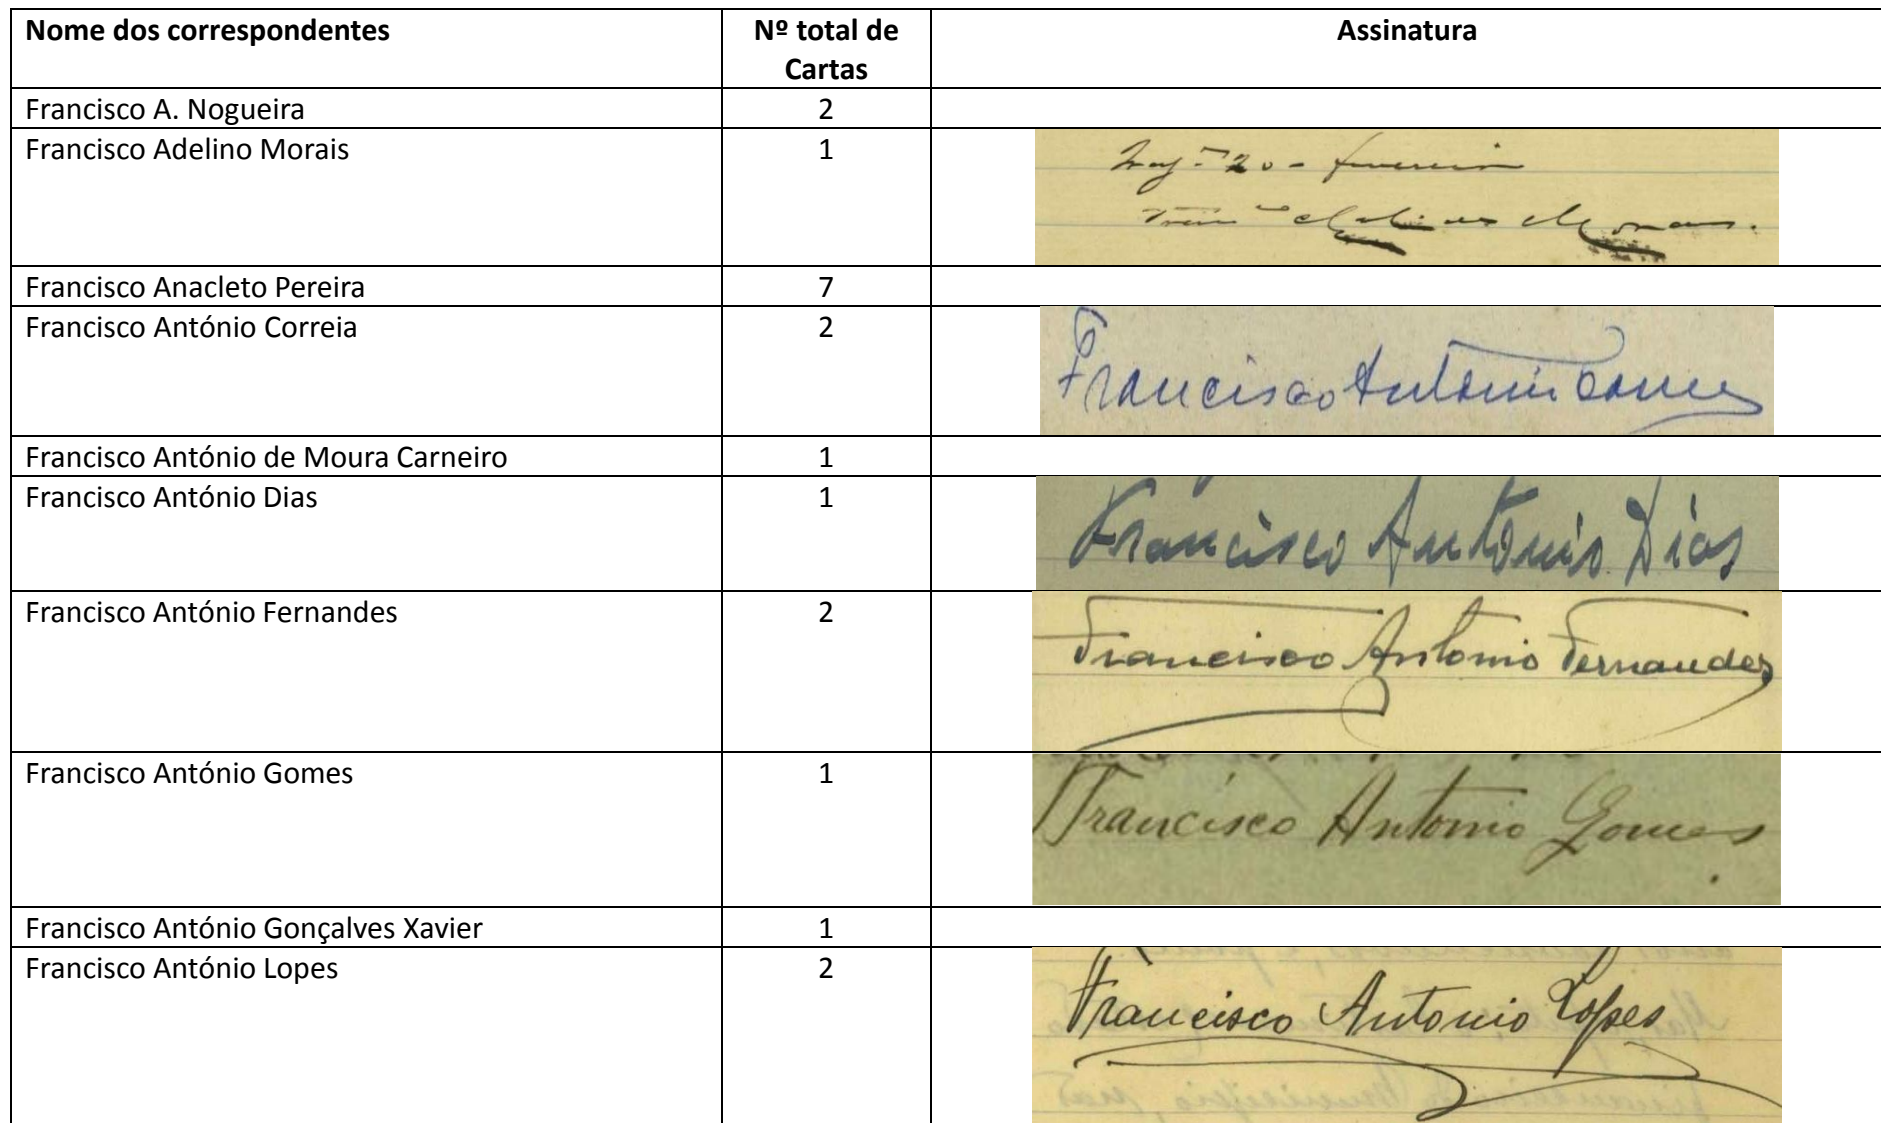 Nome dos correspondentes
Nº total de
Cartas
Assinatura
Francisco A. Nogueira
2
Francisco Adelino Morais
1
20 - fevereiro
Morais.
Francisco Anacleto Pereira
7
Francisco António Correia
2
Francisco Antonio
Francisco António de Moura Carneiro
1
Francisco António Dias
1
Francisco Antonio Dias
Francisco António Fernandes
2
Francisco Antonio Fernandes
Francisco António Gomes
1
Francisco Antonio Gomes
Francisco António Gonçalves Xavier
1
Francisco António Lopes
2
Francisco Antonio Lopes